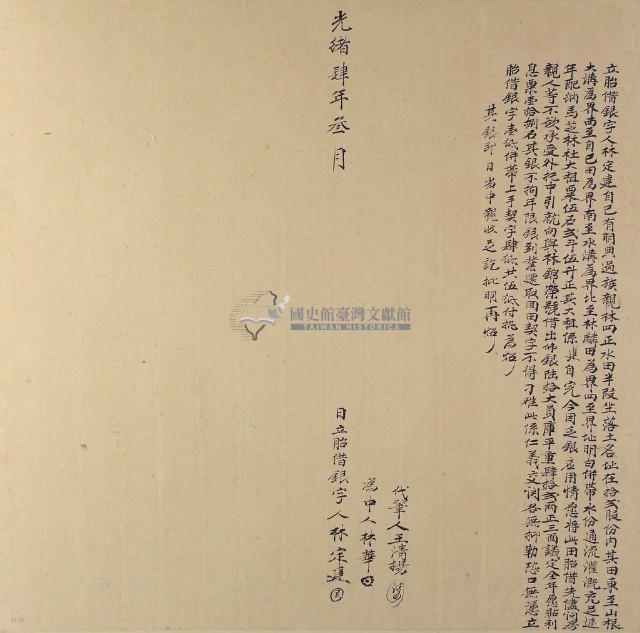 立胎借銀字人林定建自己有明典過族親林四正水田半段坐落土名址在拾貳股份內其田東至山根
大溝為界西至自己田為界南至水溝為界北至林麟田為界四至界址明白併帶水份通流灌溉充足遞
年配納馬芝林社大租粟伍石貳斗伍升正其大租係自完今因乏銀應用情愿將此田胎借先儘問房
親人等不欲承受外托中引就向與林錦號借出佛銀陸拾大員庫平重肆拾貳兩正三面議定全年愿貼利
息粟壹拾捌石其銀不拘年限銀到業還取回田契字不得刁難此係仁義交關各無抑勒恐口無憑立
胎借銀字壹紙併帶上手契字肆紙共伍紙付執為炤
其銀即日當中親收足訖批明再炤
代筆人王清揚
為中人林華
光緒肆年叁月 日立胎借銀字人林定建
國史館臺灣文獻館
TAIWAN HISTORICA